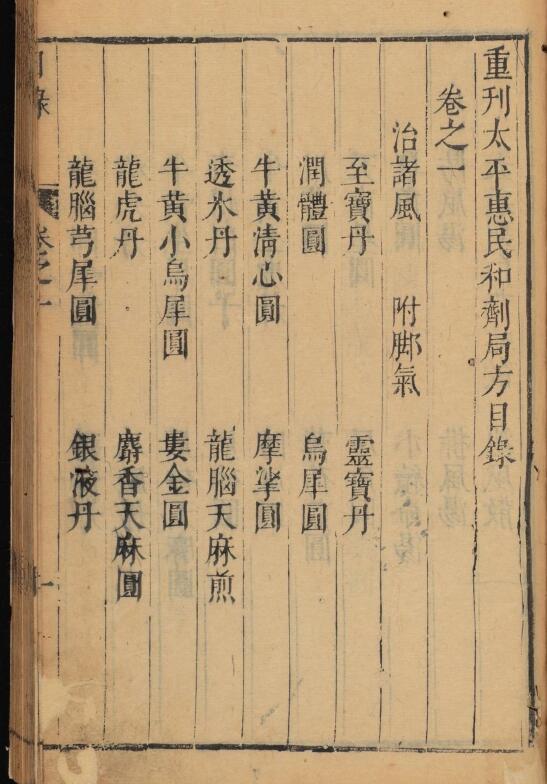 重刊太平惠民和劑局方目錄
卷之一
治諸風　附脚氣
至寶丹　靈寶丹
潤體圓　烏犀圓
牛黃清心圓　摩挲圓
透氷丹　龍腦天麻煎
牛黃小烏犀圓　婁金圓
龍虎丹　麝香天麻圓
龍腦芎犀圓　銀液丹
目錄　卷之一　一